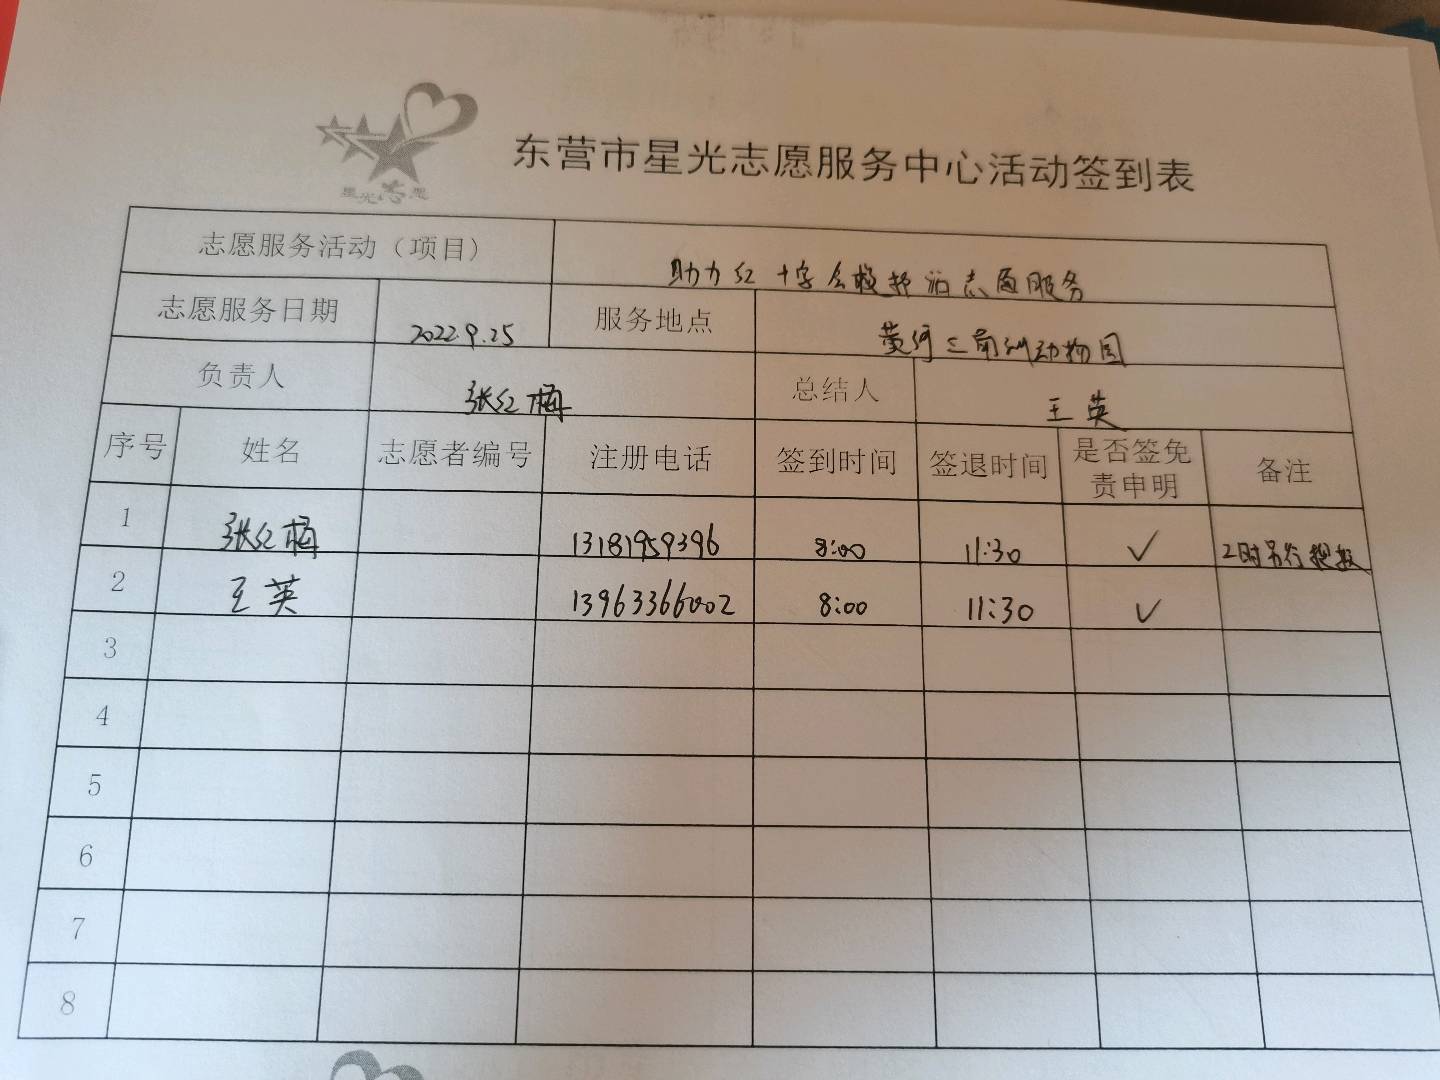 星光志愿
东营市星光志愿服务中心活动签到表
志愿服务活动（项目） 助力红十字会 活志愿服务
志愿服务日期 2022.9.25 服务地点 黄河三角洲动物园
负责人 张红梅 总结人 王英
序号 姓名 志愿者编号 注册电话 签到时间 签退时间 是否签免责申明 备注
1 张红梅 13181959396 8:00 11:30 ✓ 2时另行
2 王英 13963366002 8:00 11:30 ✓
3
4
5
6
7
8